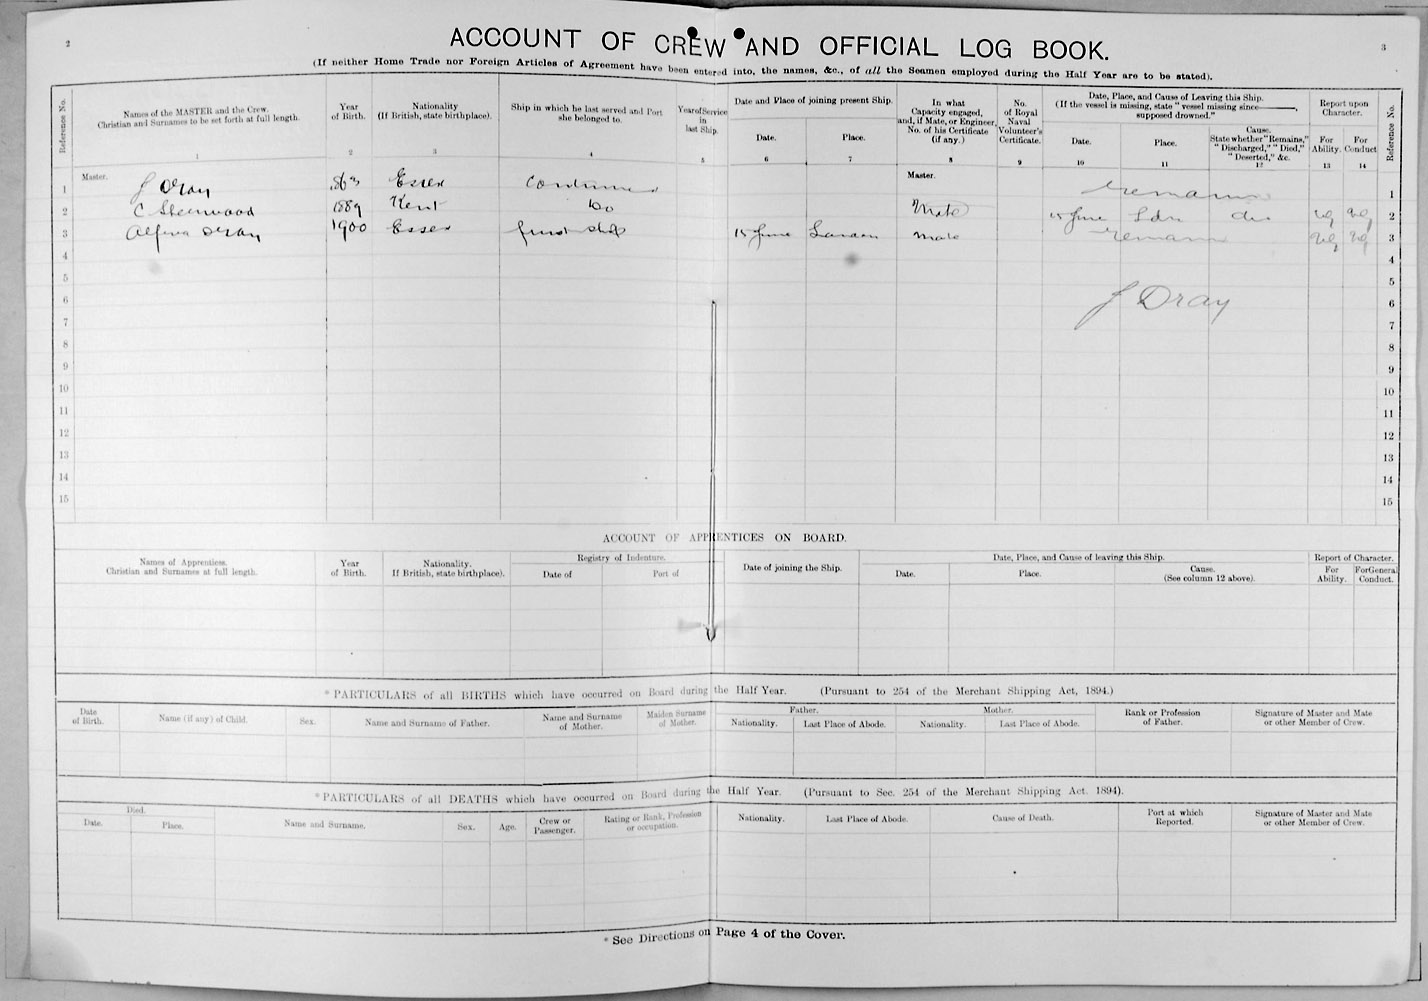 2
3
ACCOUNT OF CREW AND OFFICIAL LOG BOOK.
(If neither Home Trade nor Foreign Articles of Agreement have been entered into, the names, &c., of all the Seamen employed during the Half Year are to be stated).
Reference No.
Names of the MASTER and the Crew.
Christian and Surnames to be set forth at full length.
1
Year
of Birth.
2
Nationality
(If British, state birthplace).
3
Ship in which he last served and Port
she belonged to.
4
Year of Service
in
last Ship.
5
Date and Place of joining present Ship.
Date.
6
Place.
7
In what
Capacity engaged,
and, if Mate, or Engineer,
No. of his Certificate
(if any.)
8
No.
of Royal
Naval
Volunteer's
Certificate.
9
Date, Place, and Cause of Leaving this Ship.
(If the vessel is missing, state "vessel missing since———,
supposed drowned."
Date.
10
Place.
11
Cause.
State whether "Remains,"
"Discharged," "Died,"
"Deserted," &c.
12
Report upon
Character.
For
Ability.
13
For
Conduct
14
Reference No.
1 Master. J Dray Essex continues Master. remains 1
2 C Sherwood 1889 Kent do Mate 15 June Ldn dis vg vg 2
3 Dray 1900 Essex first ship 15 June London Mate remains vg vg 3
4 4
5 5
6 J Dray 6
7 7
8 8
9 9
10 10
11 11
12 12
13 13
14 14
15 15
ACCOUNT OF APPRENTICES ON BOARD.
Names of Apprentices.
Christian and Surnames at full length.
Year
of Birth.
Nationality.
If British, state birthplace).
Registry of Indenture.
Date of
Port of
Date of joining the Ship.
Date, Place, and Cause of leaving this Ship.
Date.
Place.
Cause.
(See column 12 above).
Report of Character.
For
Ability.
For General
Conduct.
* PARTICULARS of all BIRTHS which have occurred on Board during the Half Year. (Pursuant to 254 of the Merchant Shipping Act, 1894.)
Date
of Birth.
Name (if any) of Child.
Sex.
Name and Surname of Father.
Name and Surname
of Mother.
Maiden Surname
of Mother.
Father.
Nationality.
Last Place of Abode.
Mother.
Nationality.
Last Place of Abode.
Rank or Profession
of Father.
Signature of Master and Mate
or other Member of Crew.
* PARTICULARS of all DEATHS which have occurred on Board during the Half Year. (Pursuant to Sec. 254 of the Merchant Shipping Act. 1894).
Died.
Date.
Place.
Name and Surname.
Sex.
Age.
Crew or
Passenger.
Rating or Rank, Profession
or occupation.
Nationality.
Last Place of Abode.
Cause of Death.
Port at which
Reported.
Signature of Master and Mate
or other Member of Crew.
* See Directions on Page 4 of the Cover.